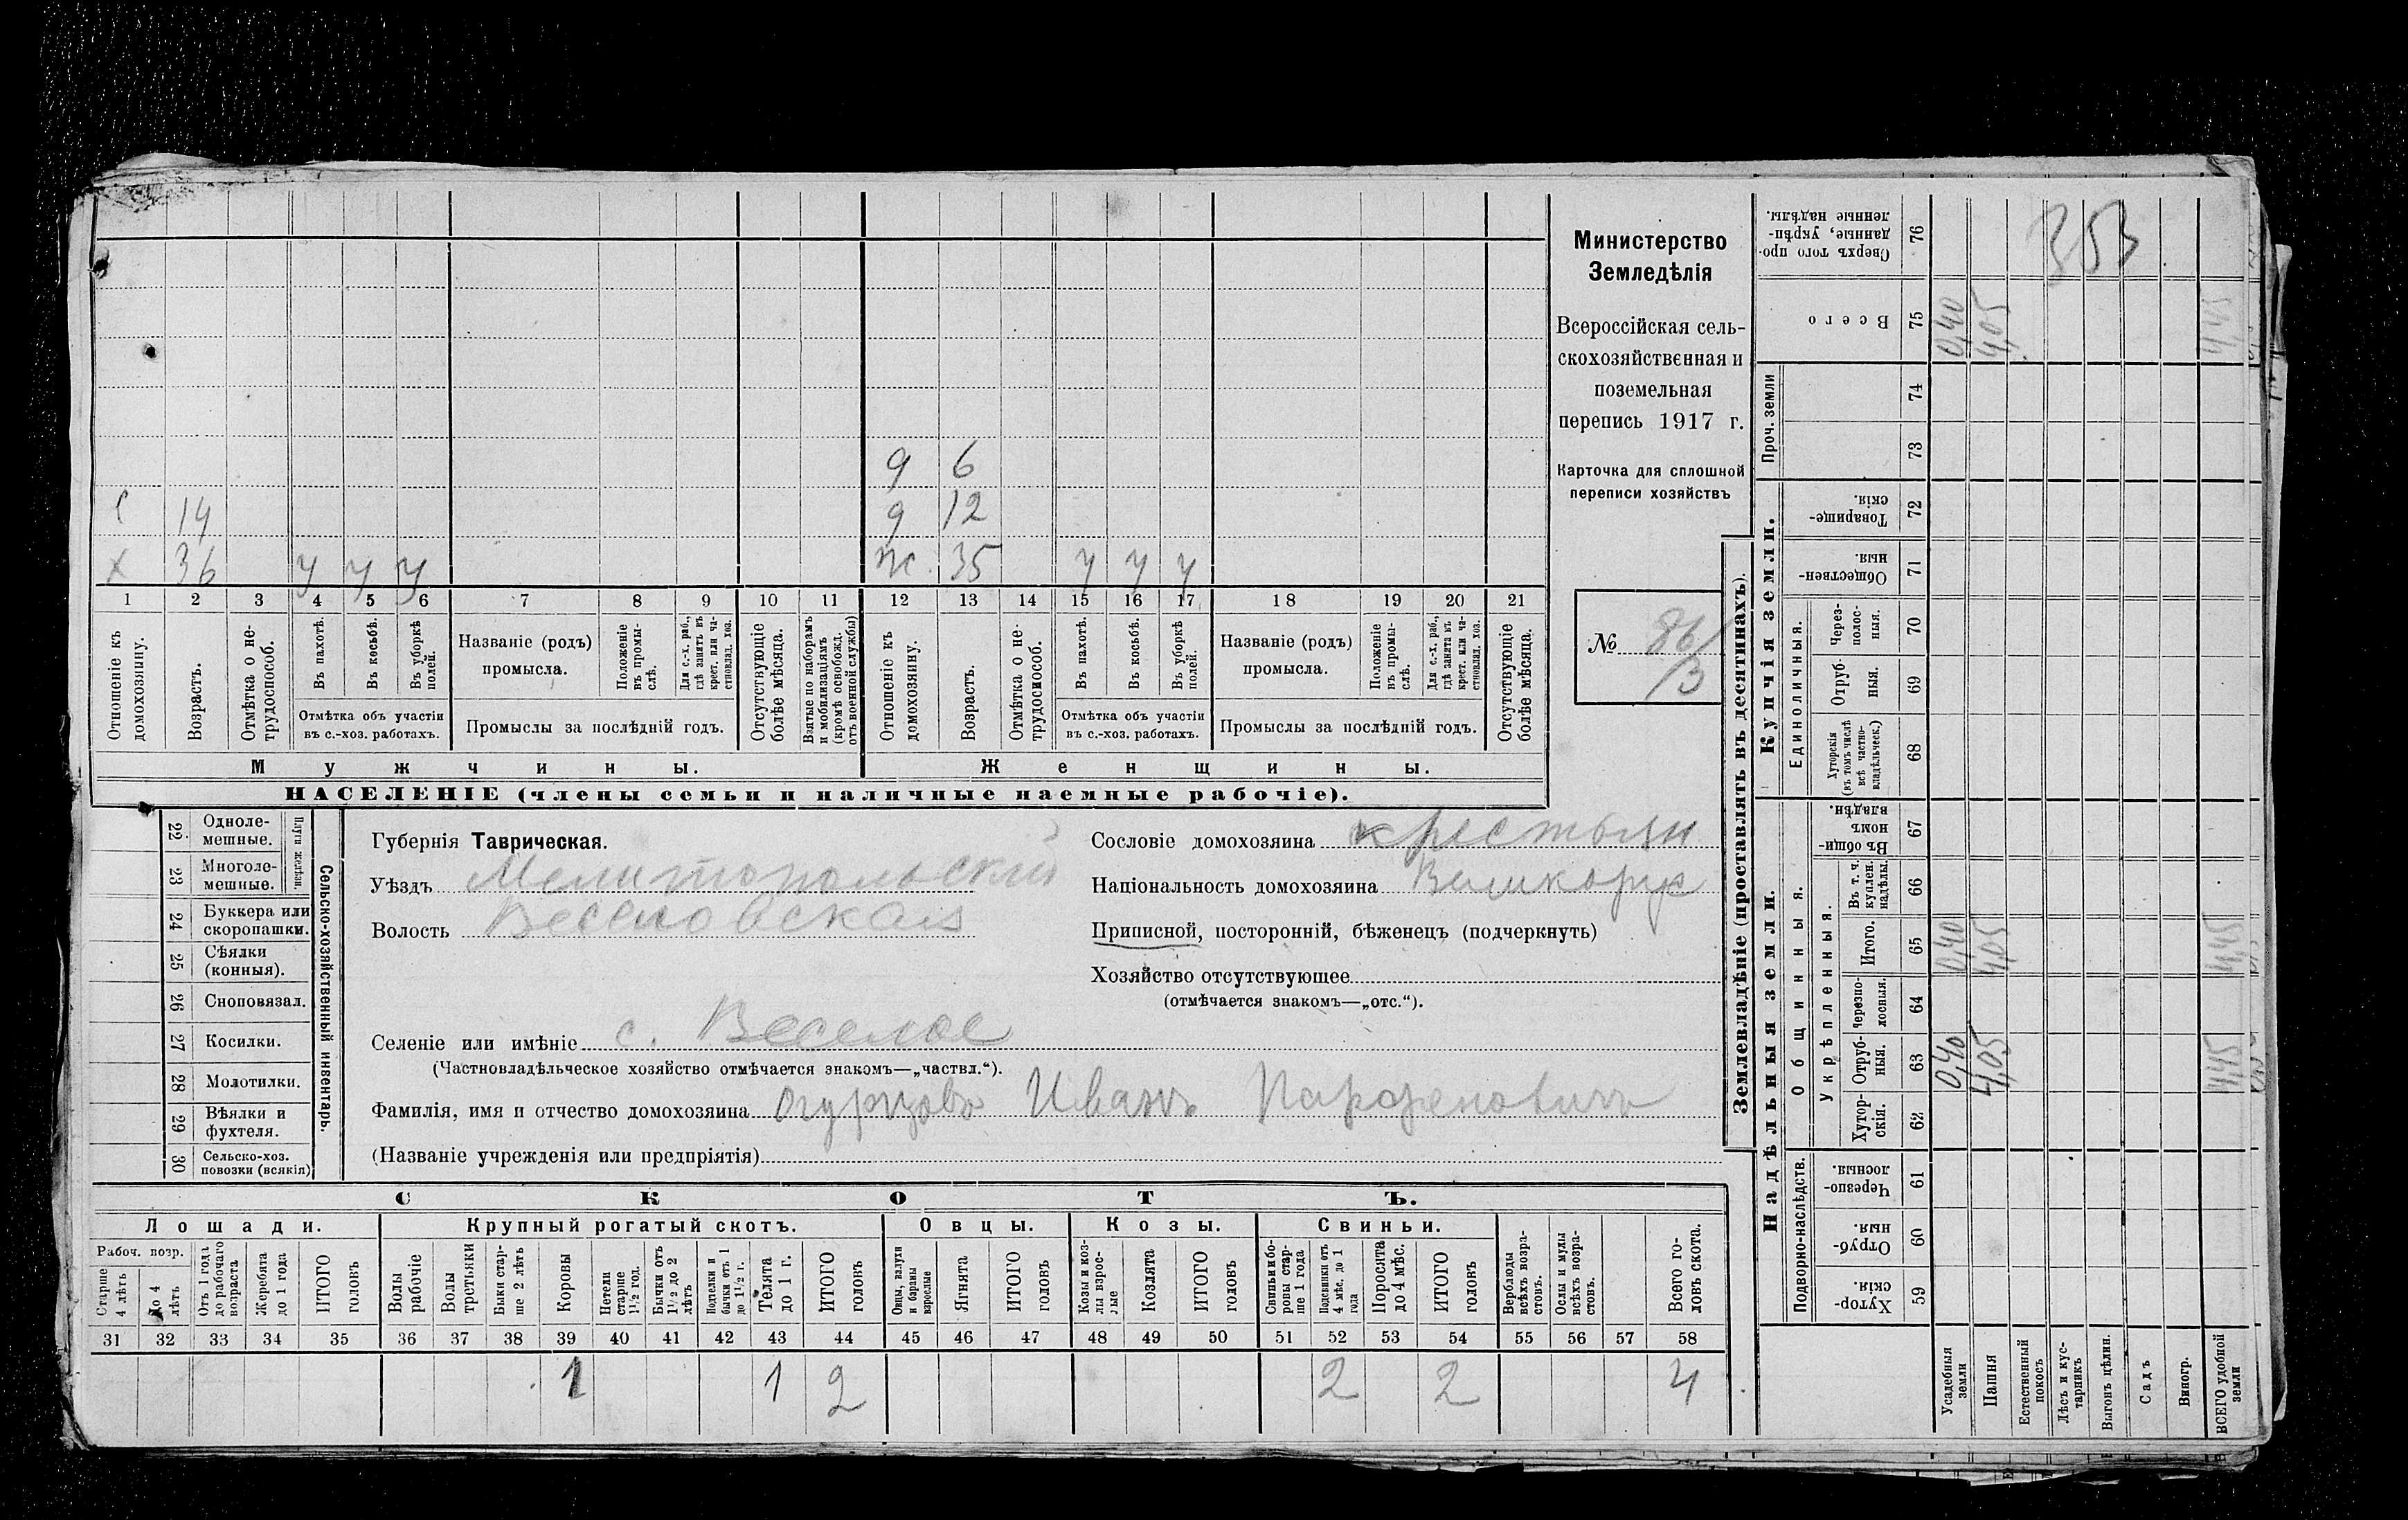 9 6
с 14 9 12
х 36 у у у ж. 35 у у у
1 2 3 4 5 6 7 8 9 10 11 12 13 14 15 16 17 18 19 20 21
Отношеніе къ домохозяину.
Возрастъ.
Отмѣтка о не-трудоспособ.
Въ пахотѣ.
Въ косьбѣ.
Въ уборкѣ полей.
Отмѣтка объ участіи
въ с.-хоз. работахъ.
Названіе (родъ)
промысла.
Положеніе въ промы-слѣ.
Для с.-х. раб., гдѣ занятъ въ крест. или ча-стновлад. хоз.
Промыслы за послѣдній годъ.
Отсутствующіе болѣе мѣсяца.
Взятые по наборамъ и мобилизаціямъ (кромѣ освобожд. отъ военной службы)
Отношеніе къ домохозяину.
Возрастъ.
Отмѣтка о не-трудоспособ.
Въ пахотѣ.
Въ косьбѣ.
Въ уборкѣ полей.
Отмѣтка объ участіи
въ с.-хоз. работахъ.
Названіе (родъ)
промысла.
Положеніе въ промы-слѣ.
Для с.-х. раб., гдѣ занята въ крест. или ча-стновлад. хоз.
Промыслы за послѣдній годъ.
Отсутствующіе болѣе мѣсяца.
Мужчины.
Женщины.
НАСЕЛЕНІЕ (члены семьи и наличные наемные рабочіе).
Министерство
Земледѣлія
Всероссійская сель-
скохозяйственная и
поземельная
перепись 1917 г.
Карточка для сплошной
переписи хозяйствъ
№ 86/
13
22 Одноле-мешные.
23 Многоле-мешные.
Плуги желѣзн.
24 Буккера или скоропашки.
25 Сѣялки (конныя).
26 Сноповязал.
27 Косилки.
28 Молотилки.
29 Вѣялки и фухтеля.
30 Сельско-хоз. повозки (всякія)
Сельско-хозяйственный инвентарь.
Губернія Таврическая.
Уѣздъ Мелитопольский
Волость Веселовская
Селеніе или имѣніе с. Веселое
(Частновладѣльческое хозяйство отмѣчается знакомъ—„частвл.“).
Фамилія, имя и отчество домохозяина Огурцовъ Иванъ Парфеновичъ
(Названіе учрежденія или предпріятія)
Сословіе домохозяина крестьян
Національность домохозяина Великорус
Приписной, посторонній, бѣженецъ (подчеркнуть)
Хозяйство отсутствующее
(отмѣчается знакомъ—„отс.“).
СКОТЪ.
Лошади.
Крупный рогатый скотъ.
Овцы.
Козы.
Свиньи.
Рабоч. возр.
Старше 4 лѣтъ
До 4 лѣтъ
Отъ 1 года до рабочаго возраста
Жеребята до 1 года
ИТОГО головъ
Волы рабочіе
Волы третьяки
Быки стар-ше 2 лѣтъ
Коровы
Нетели старше 1½ год.
Бычки отъ 1½ до 2 лѣтъ
Подтелки и бычки отъ 1 до 1½ г.
Телята до 1 г.
ИТОГО головъ
Овцы, валухи и бараны взрослые
Ягнята
ИТОГО головъ
Козы и коз-лы взрос-лые
Козлята
ИТОГО головъ
Свиньи и бо-ровы стар-ше 1 года
Подсвинки отъ 4 мѣс. до 1 года
Поросята до 4 мѣс.
ИТОГО головъ
Верблюды всѣхъ возра-стовъ.
Ослы и мулы всѣхъ возра-стовъ.
Всего го-ловъ скота.
31 32 33 34 35 36 37 38 39 40 41 42 43 44 45 46 47 48 49 50 51 52 53 54 55 56 57 58
1 1 2 2 2 4
Землевладѣніе (проставлять въ десятинахъ).
Надѣльныя земли.
Купчія земли.
Проч. земли
Подворно-наслѣдств.
Общинныя.
Укрѣпленныя.
Единоличныя.
Сверхъ того про-данные, укрѣп-ленные надѣлы. 76
353
Всего 75 0,40 4,05 4,45
74
73
Товарище-скія. 72
Обществен-ныя. 71
Через-полос-ныя. 70
Отруб-ныя. 69
Хуторскія (въ томъ числѣ всѣ частно-владѣльческ.) 68
Въ общи-номъ владѣн. 67
Въ т. ч. куплен. надѣлы. 66
Итого. 65 0,40 4,05 4,45
Черезпо-лосныя. 64
Отруб-ныя. 63 0,40 4,05 4,45
Хутор-скія. 62
Черезпо-лосныя. 61
Отруб-ныя. 60
Хутор-скія. 59
Усадебныя земли
Пашня
Естественный покосъ
Лѣсъ и кус-тарникъ
Выгонъ цѣлин.
Садъ
Виногр.
ВСЕГО удобной земли